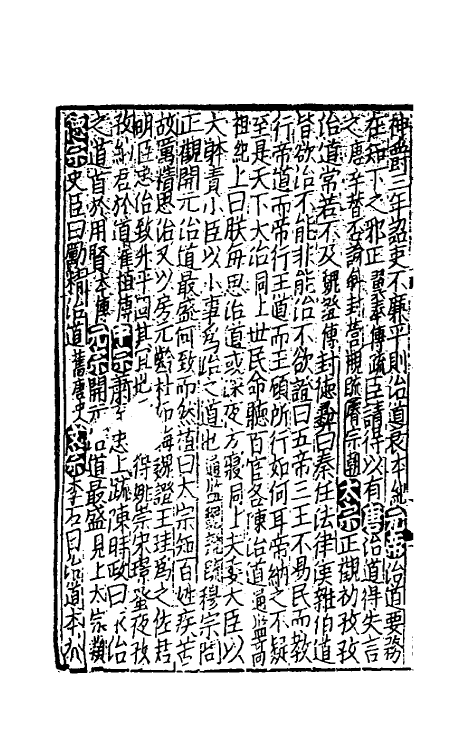 神爵三年詔吏不廉平則治道衰本紀元帝治道要務
在知下之邪正翼奉傳疏臣請得以有唐治道得失言
之太宗正觀初孜孜
治道常若不及魏證傳封德彝曰秦任法律漢雜伯道
皆欲治不能非能治不欲證曰五帝三王不易民而教
行帝道而帝行王道而王顧所行如何耳帝納之不疑
至是天下大治同上世民命聽百官各陳治道通監高
祖紀上曰朕毎思治道或深夜方寢同上夫委大臣以
大躰責小臣以小事為治之道也通監穆宗問
正觀開元治道最盛何致而然植曰太宗知百姓疾苦
故厲精思治又以房元齡杜如晦魏證王珪為之佐君
明臣忠治致升平固其宜也得姚崇宋璟蚤夜孜
孜納君於道崔植傳中宗蕭至忠上疏陳時政曰求治
之道首於用賢本傳元宗開元治道最盛見上太宗類
德宗史臣曰勵精治道舊唐史文宗李石曰治道本於